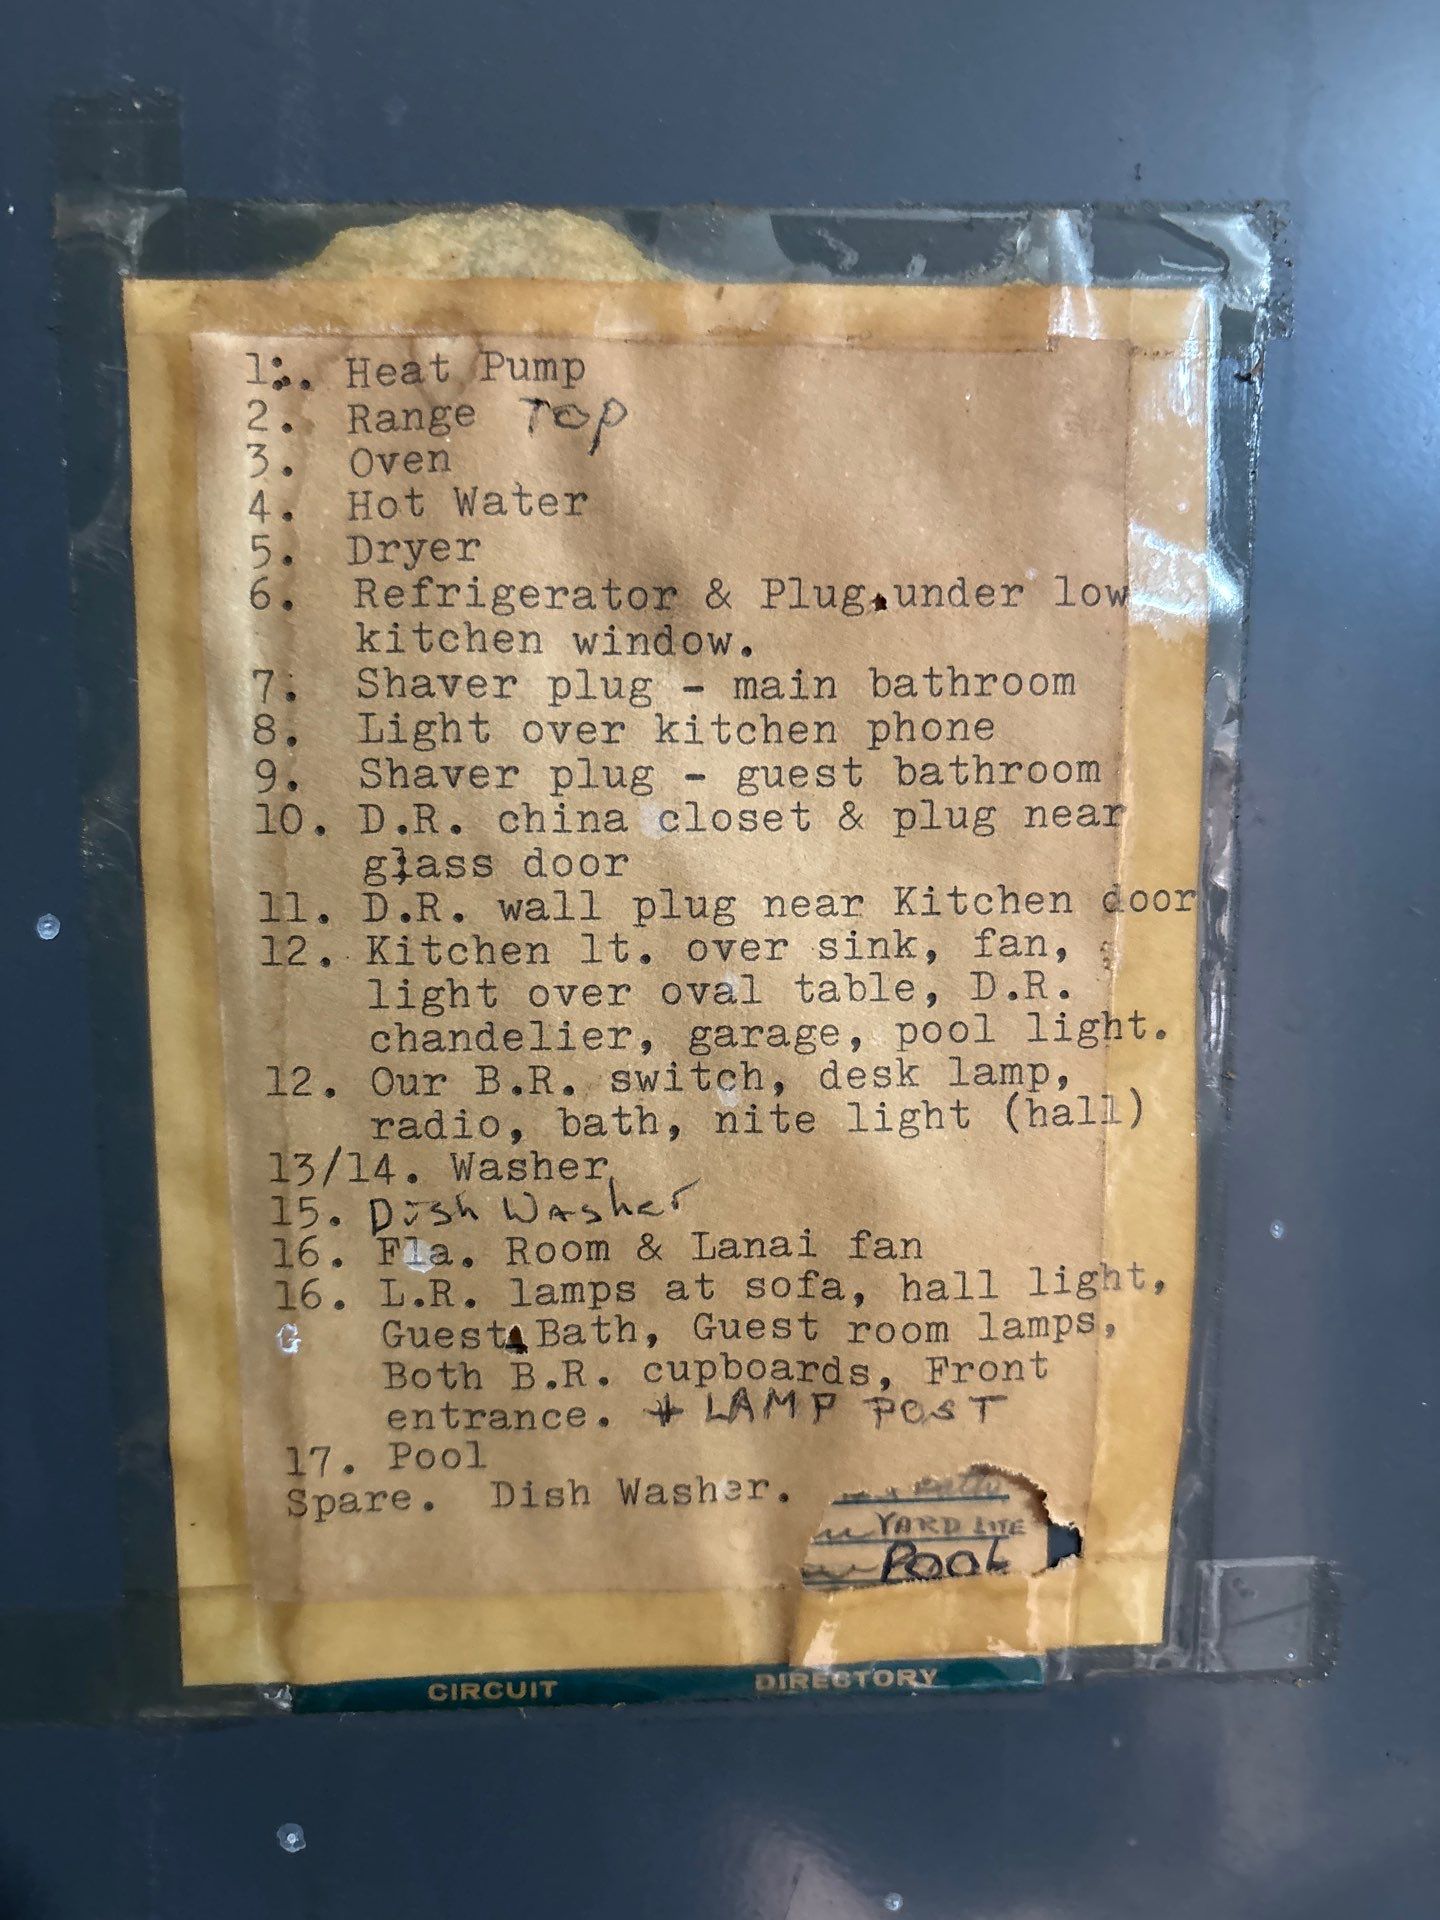 1:. Heat Pump
2. Range TOP
3. Oven
4. Hot Water
5. Dryer
6. Refrigerator & Plug under low
kitchen window.
7. Shaver plug - main bathroom
8. Light over kitchen phone
9. Shaver plug - guest bathroom
10. D.R. china closet & plug near
glass door
11. D.R. wall plug near Kitchen door
12. Kitchen lt. over sink, fan,
light over oval table, D.R.
chandelier, garage, pool light.
12. Our B.R. switch, desk lamp,
radio, bath, nite light (hall)
13/14. Washer
15. Dish Washer
16. Fla. Room & Lanai fan
16. L.R. lamps at sofa, hall light,
Guest Bath, Guest room lamps,
Both B.R. cupboards, Front
entrance. + LAMP POST
17. Pool
Spare. Dish Washer.
YARD LITE
POOL
CIRCUIT DIRECTORY